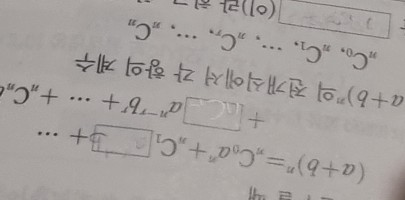 (a+b)ⁿ=ₙC₀aⁿ+ₙC₁ b+ ⋯
+ aⁿ⁻ʳbʳ+ ⋯ +ₙCₙb
(a+b)ⁿ의 전개식에서 각 항의 계수
ₙC₀, ₙC₁, ⋯, ₙCᵣ, ⋯, ₙCₙ
(이)라